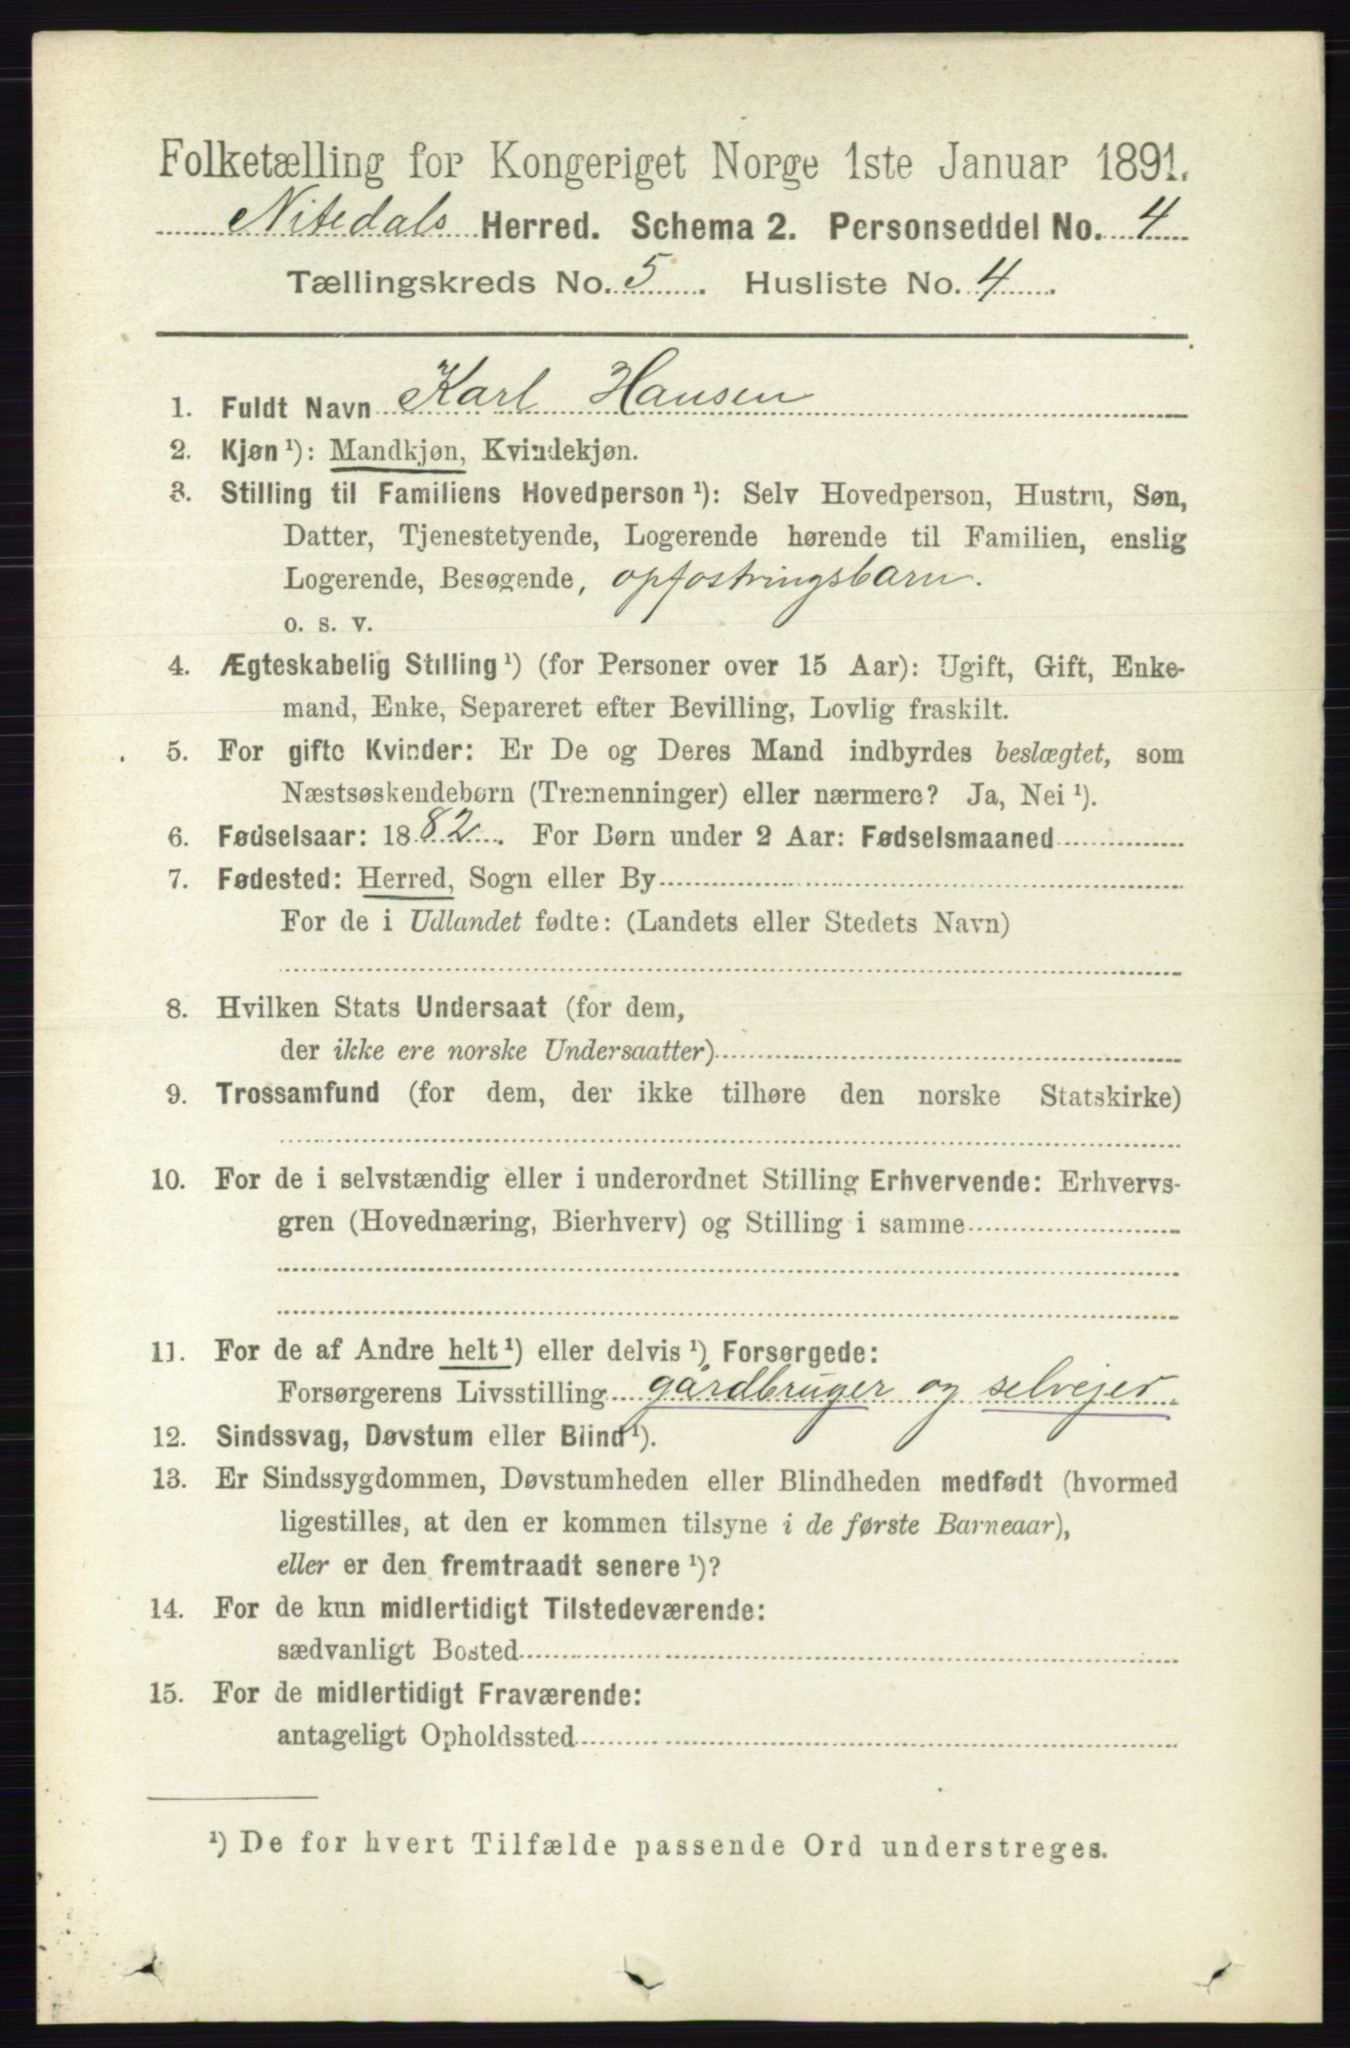 Folketælling for Kongeriget Norge 1ste Januar 1891.
Nitedals Herred. Schema 2. Personseddel No. 4
Tællingskreds No. 5. Husliste No. 4.
1. Fuldt Navn Karl Hansen
2. Kjøn¹): Mandkjøn, Kvindekjøn.
3. Stilling til Familiens Hovedperson¹): Selv Hovedperson, Hustru, Søn,
Datter, Tjenestetyende, Logerende hørende til Familien, enslig
Logerende, Besøgende, opfostringsbarn.
o. s. v.
4. Ægteskabelig Stilling¹) (for Personer over 15 Aar): Ugift, Gift, Enke-
mand, Enke, Separeret efter Bevilling, Lovlig fraskilt.
5. For gifte Kvinder: Er De og Deres Mand indbyrdes beslægtet, som
Næstsøskendebørn (Tremenninger) eller nærmere? Ja, Nei¹).
6. Fødselsaar: 1882. For Børn under 2 Aar: Fødselsmaaned
7. Fødested: Herred, Sogn eller By
For de i Udlandet fødte: (Landets eller Stedets Navn)
8. Hvilken Stats Undersaat (for dem,
der ikke ere norske Undersaatter)
9. Trossamfund (for dem, der ikke tilhøre den norske Statskirke)
10. For de i selvstændig eller i underordnet Stilling Erhvervende: Erhvervs-
gren (Hovednæring, Bierhverv) og Stilling i samme
11. For de af Andre helt¹) eller delvis¹) Forsørgede:
Forsørgerens Livsstilling gårdbruger og selvejer.
12. Sindssvag, Døvstum eller Blind¹).
13. Er Sindssygdommen, Døvstumheden eller Blindheden medfødt (hvormed
ligestilles, at den er kommen tilsyne i de første Barneaar),
eller er den fremtraadt senere¹)?
14. For de kun midlertidigt Tilstedeværende:
sædvanligt Bosted
15. For de midlertidigt Fraværende:
antageligt Opholdssted
¹) De for hvert Tilfælde passende Ord understreges.